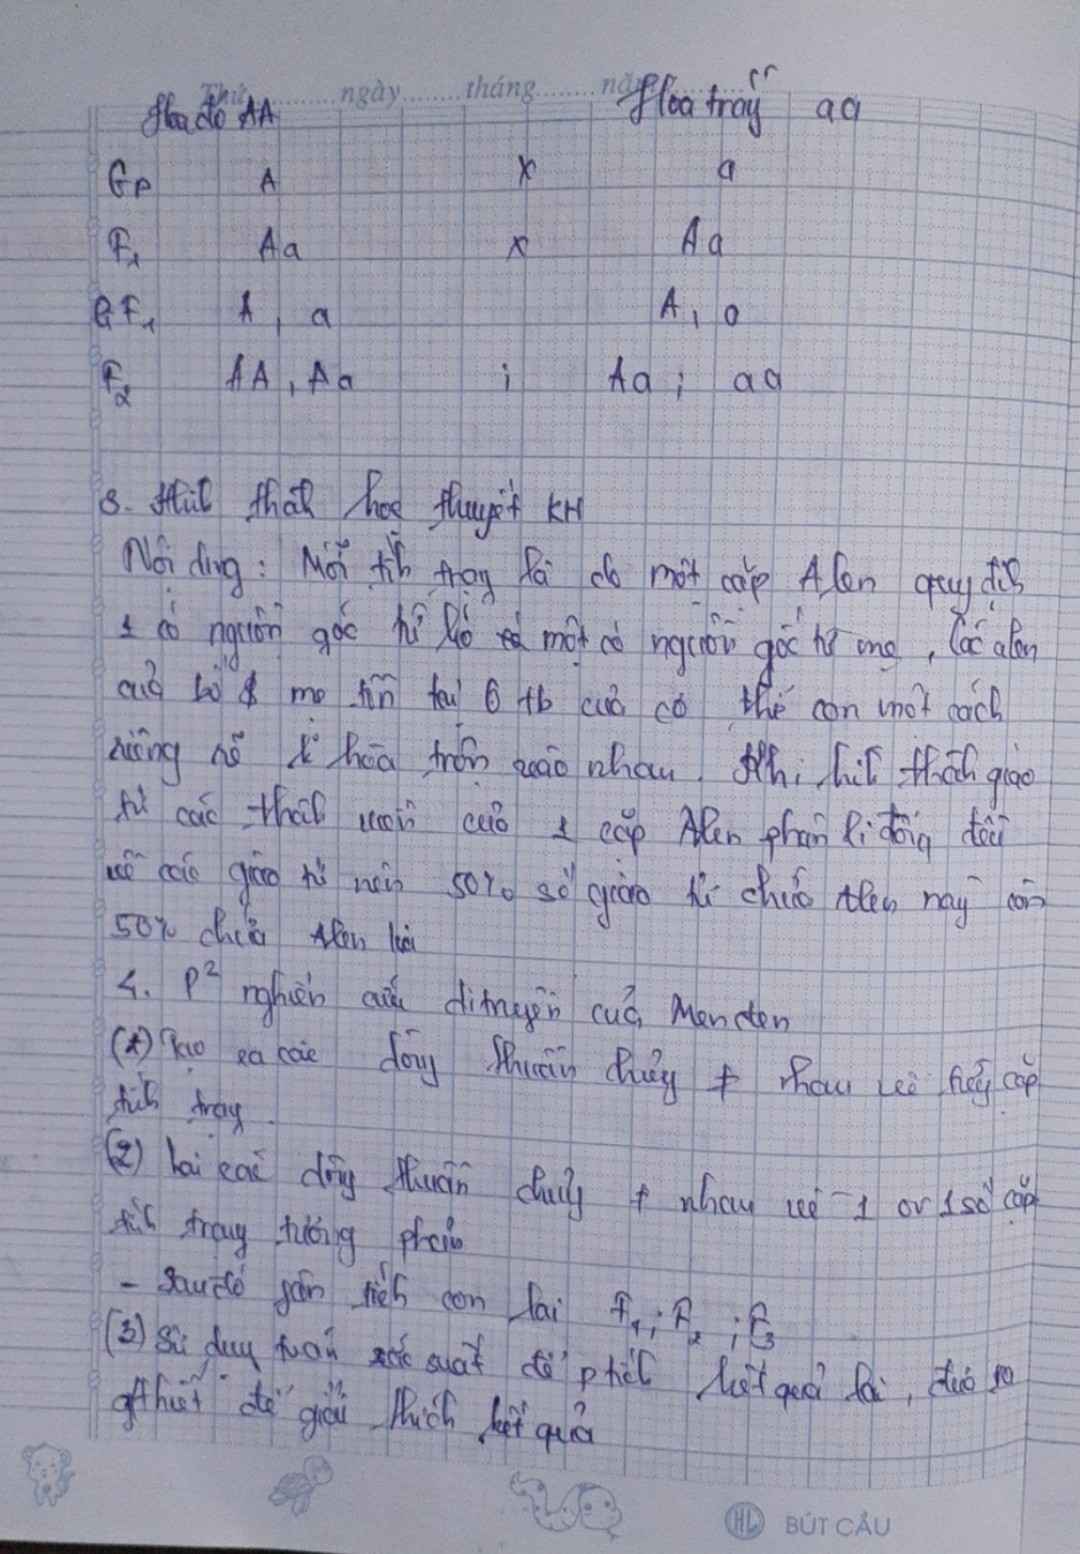 Thứ ........ ngày ........ tháng ........ nă
Hoa đỏ AA Hoa trắng aa
Gp A x a
F₁ Aa x Aa
GF₁ A, a A, a
F₂ AA, Aa ; Aa ; aa
3. Hình thành học thuyết KH
Nội dung: Mỗi tính trạng là do một cặp Alen quy định
1 có nguồn gốc từ bố và một có nguồn gốc từ mẹ, Các alen
của bố & mẹ tồn tại ở tb của cơ thể con một cách
riêng rẽ k hòa trộn vào nhau. Khi hình thành giao
tử các thành viên của 1 cặp Alen phân li đồng đều
về các giao tử nên 50% số giao tử chứa Alen này còn
50% chứa Alen kia
4. P² nghiên cứu di truyền của Menden
(1) Tạo ra các dòng thuần chủng ≠ nhau về từng cặp
tính trạng
(2) lai các dòng thuần chủng ≠ nhau về 1 or 1 số cặp
tính trạng tương phản
- Sau đó phân tích con lai F₁; F₂; F₃
(3) Sử dụng toán xác suất để ptích kết quả lai, đưa ra
gthiết để giải thích kết quả
HL BÚT CÂU